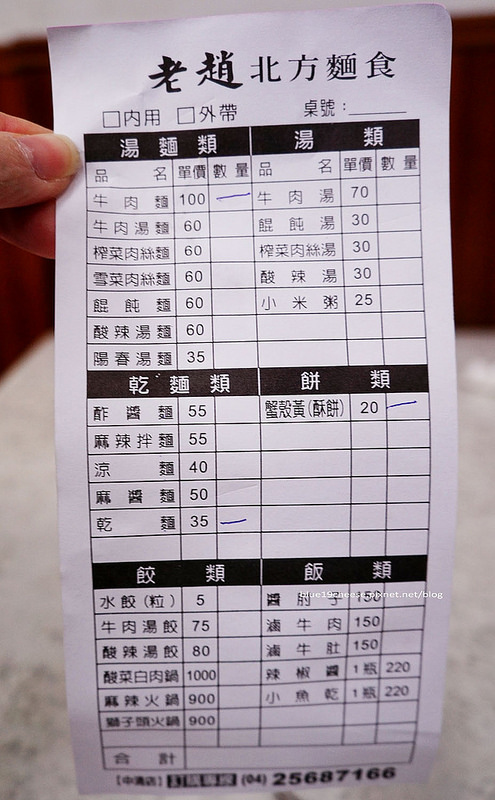 老趙北方麵食
□內用 □外帶 桌號：
湯麵類
品名 單價 數量
牛肉麵 100 一
牛肉湯麵 60
榨菜肉絲麵 60
雪菜肉絲麵 60
餛飩麵 60
酸辣湯麵 60
陽春湯麵 35
湯類
品名 單價 數量
牛肉湯 70
餛飩湯 30
榨菜肉絲湯 30
酸辣湯 30
小米粥 25
乾麵類
酢醬麵 55
麻辣拌麵 55
涼麵 40
麻醬麵 50
乾麵 35 一
餅類
蟹殼黃(酥餅) 20 一
餃類
水餃(粒) 5
牛肉湯餃 75
酸辣湯餃 80
酸菜白肉鍋 1000
麻辣火鍋 900
獅子頭火鍋 900
飯類
醬肘子 150
滷牛肉 150
滷牛肚 150
辣椒醬 1瓶 220
小魚乾 1瓶 220
合計
【中清店】訂購專線 (04) 25687166
blue19cheese.pixnet.net/blog